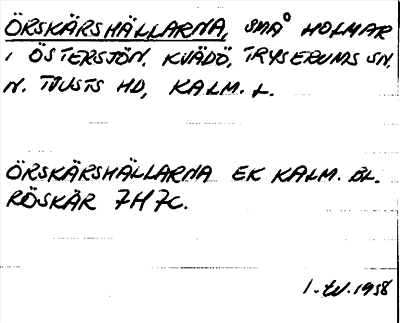 ÖRSKÄRSHÄLLARNA, SMÅ HOLMAR
I ÖSTERSJÖN. KVÄDÖ, TRYSERUMS SN,
N. TJUSTS HD, KALM. L.
ÖRSKÄRSHÄLLARNA EK KALM. BL.
RÖSKÄR 7H7C.
1. 1958